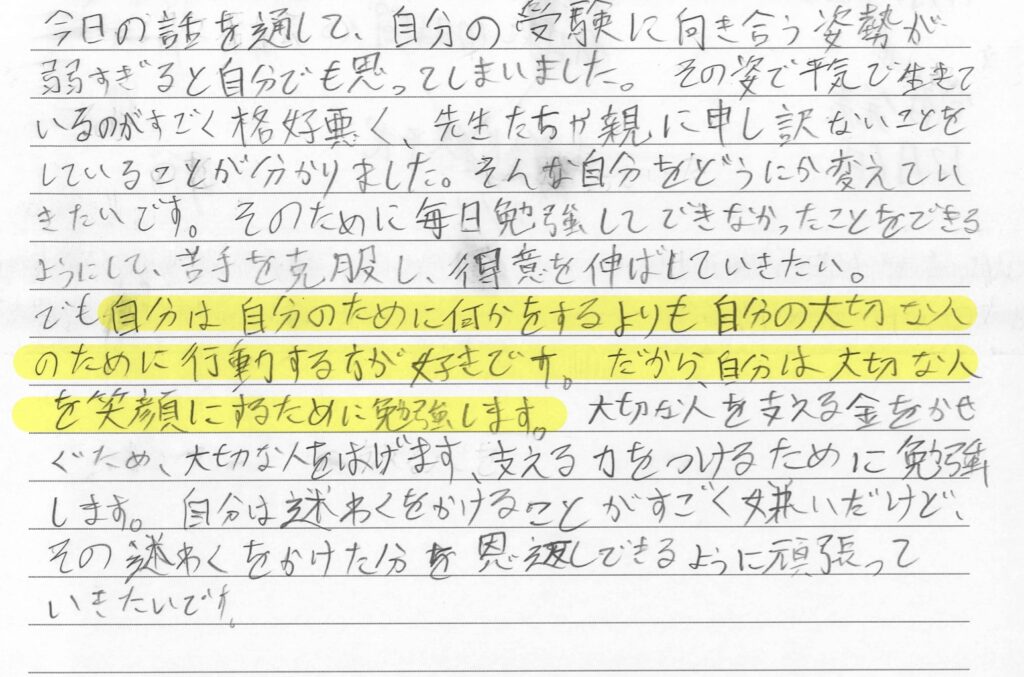 今日の話を通して、自分の受験に向き合う姿勢が
弱すぎると自分でも思ってしまいました。その姿で平気で生きて
いるのがすごく格好悪く、先生たちや親に申し訳ないことを
していることが分かりました。そんな自分をどうにか変えてい
きたいです。そのために毎日勉強してできなかったことをできる
ようにして、苦手を克服し、得意を伸ばしていきたい。
でも自分は自分のために何かをするよりも自分の大切な人
のために行動する方が好きです。だから、自分は大切な人
を笑顔にするために勉強します。大切な人を支える金をかせ
ぐため、大切な人をはげます、支える力をつけるために勉強
します。自分は迷わくをかけることがすごく嫌いだけど、
その迷わくをかけた分を恩返しできるように頑張って
いきたいです。